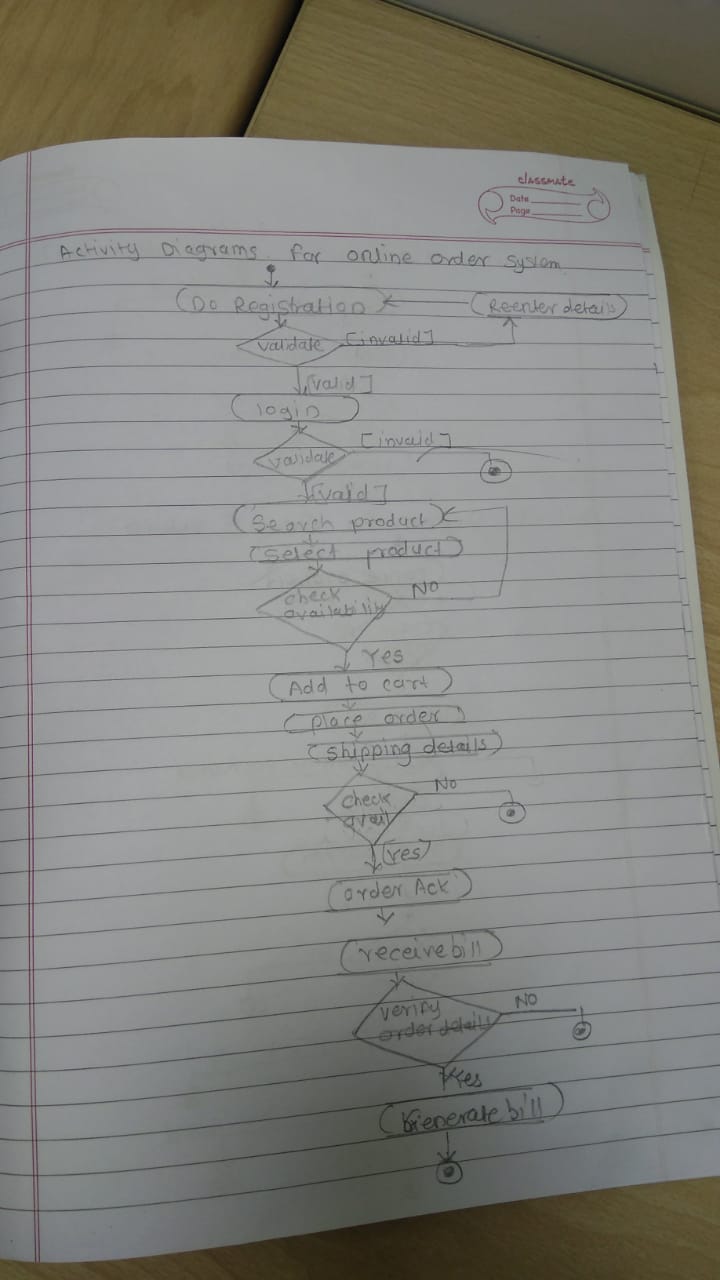 classmate
Date
Page
Activity Diagrams for online order System
Do Registration
Reenter details
validate
[invalid]
[valid]
login
validate
[invald]
[vald]
Search product
Select product
check
availability
NO
Yes
Add to cart
place order
shipping details
check
avail
No
[Yes]
order Ack
receive bill
verify
order details
NO
Yes
Generate bill